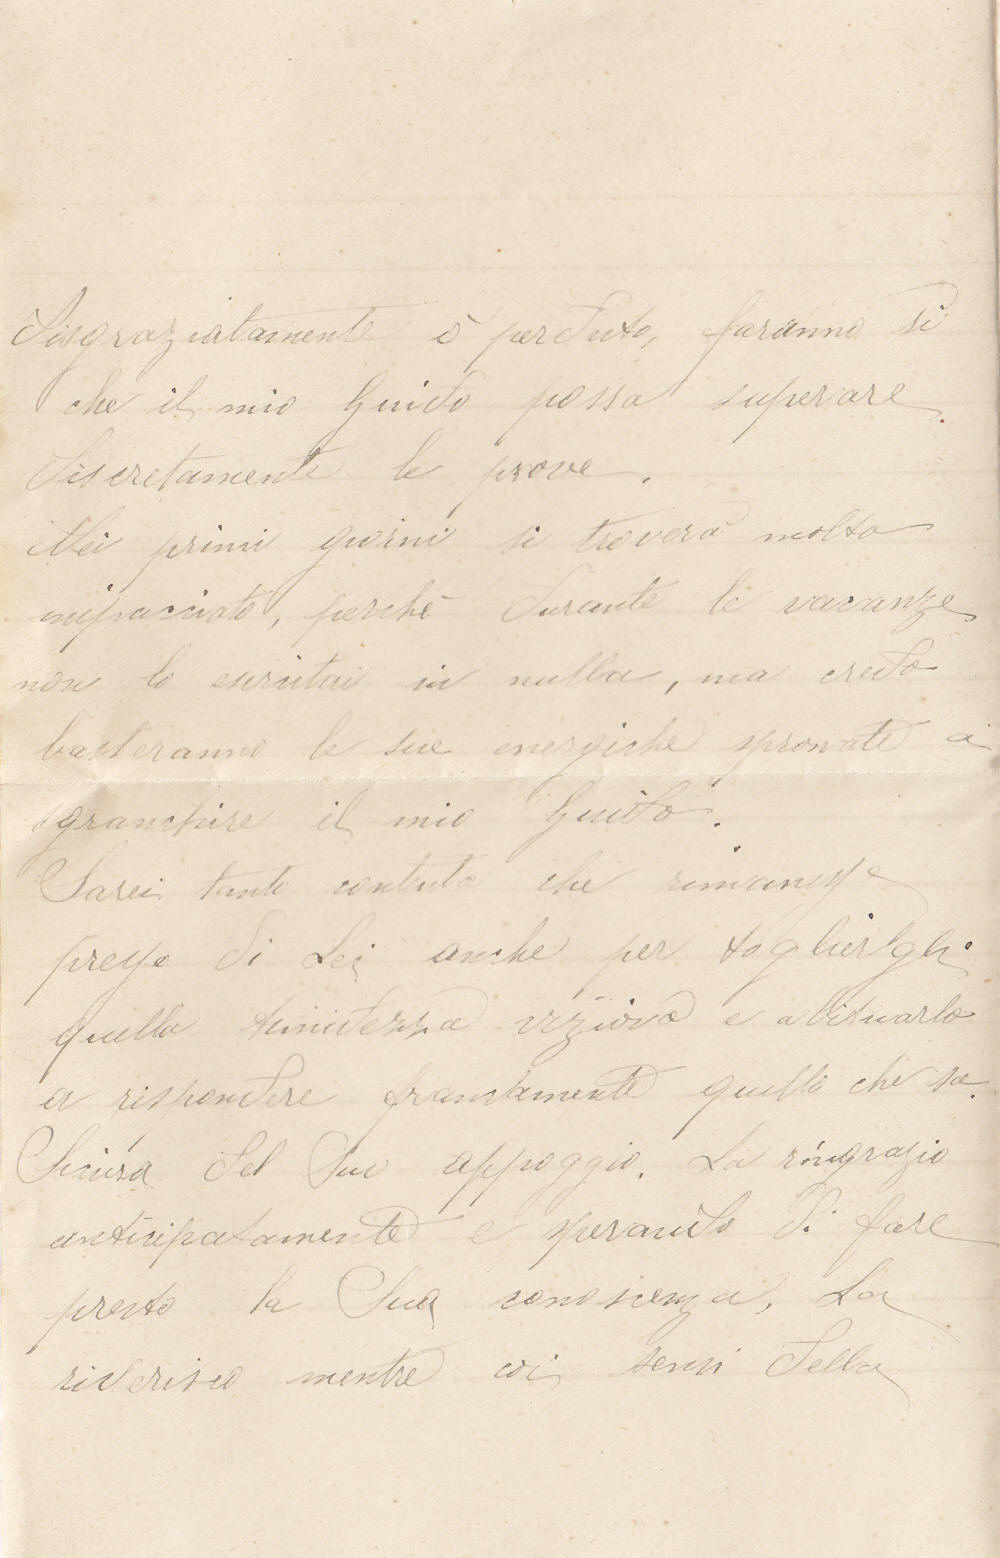 disgraziatamente à perduto, faranno sì
che il mio Guido possa superare
discretamente le prove.
Nei primi giorni si troverà molto
impacciato, perchè durante le vacanze
non lo esercitai in nulla, ma credo
basteranno le sue energiche spronate a
sgranchire il mio Guido.
Sarei tanto contenta che rimanesse
presso di Lei anche per toglierlgli
quella timidezza viziosa e abituarlo
a rispondere francamente quello che sa.
Sicura del Suo appoggio. La ringrazio
anticipatamente e sperando di fare
presto la Sua conoscenza, La
riverisco mentre coi sensi della